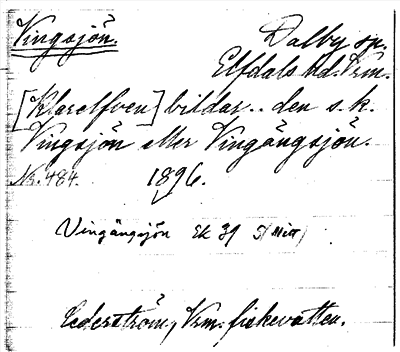 Vingsjön. Dalby sn.
Elfdals hd. Vrm.
[Klarelfven] bildar .. den s. k.
Vingsjön eller Vingängsjön.
Nr. 484. 1896.
Vingängsjön Ek 39
Cederström, Vrm. fiskevatten.